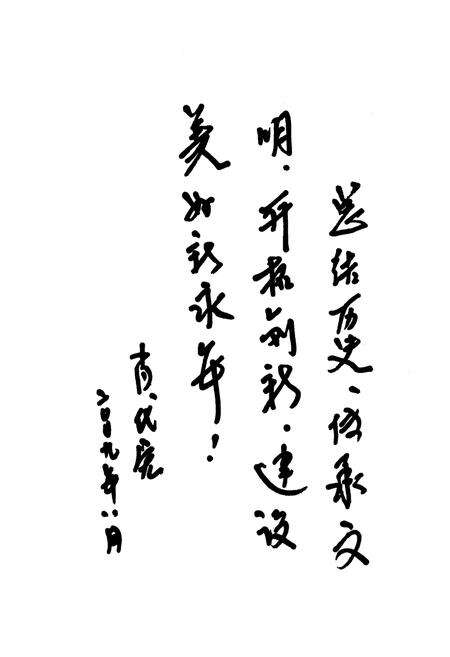 总结历史、传承文
明、开拓创新、建设
美好新永年！
肖
二〇〇九年八月